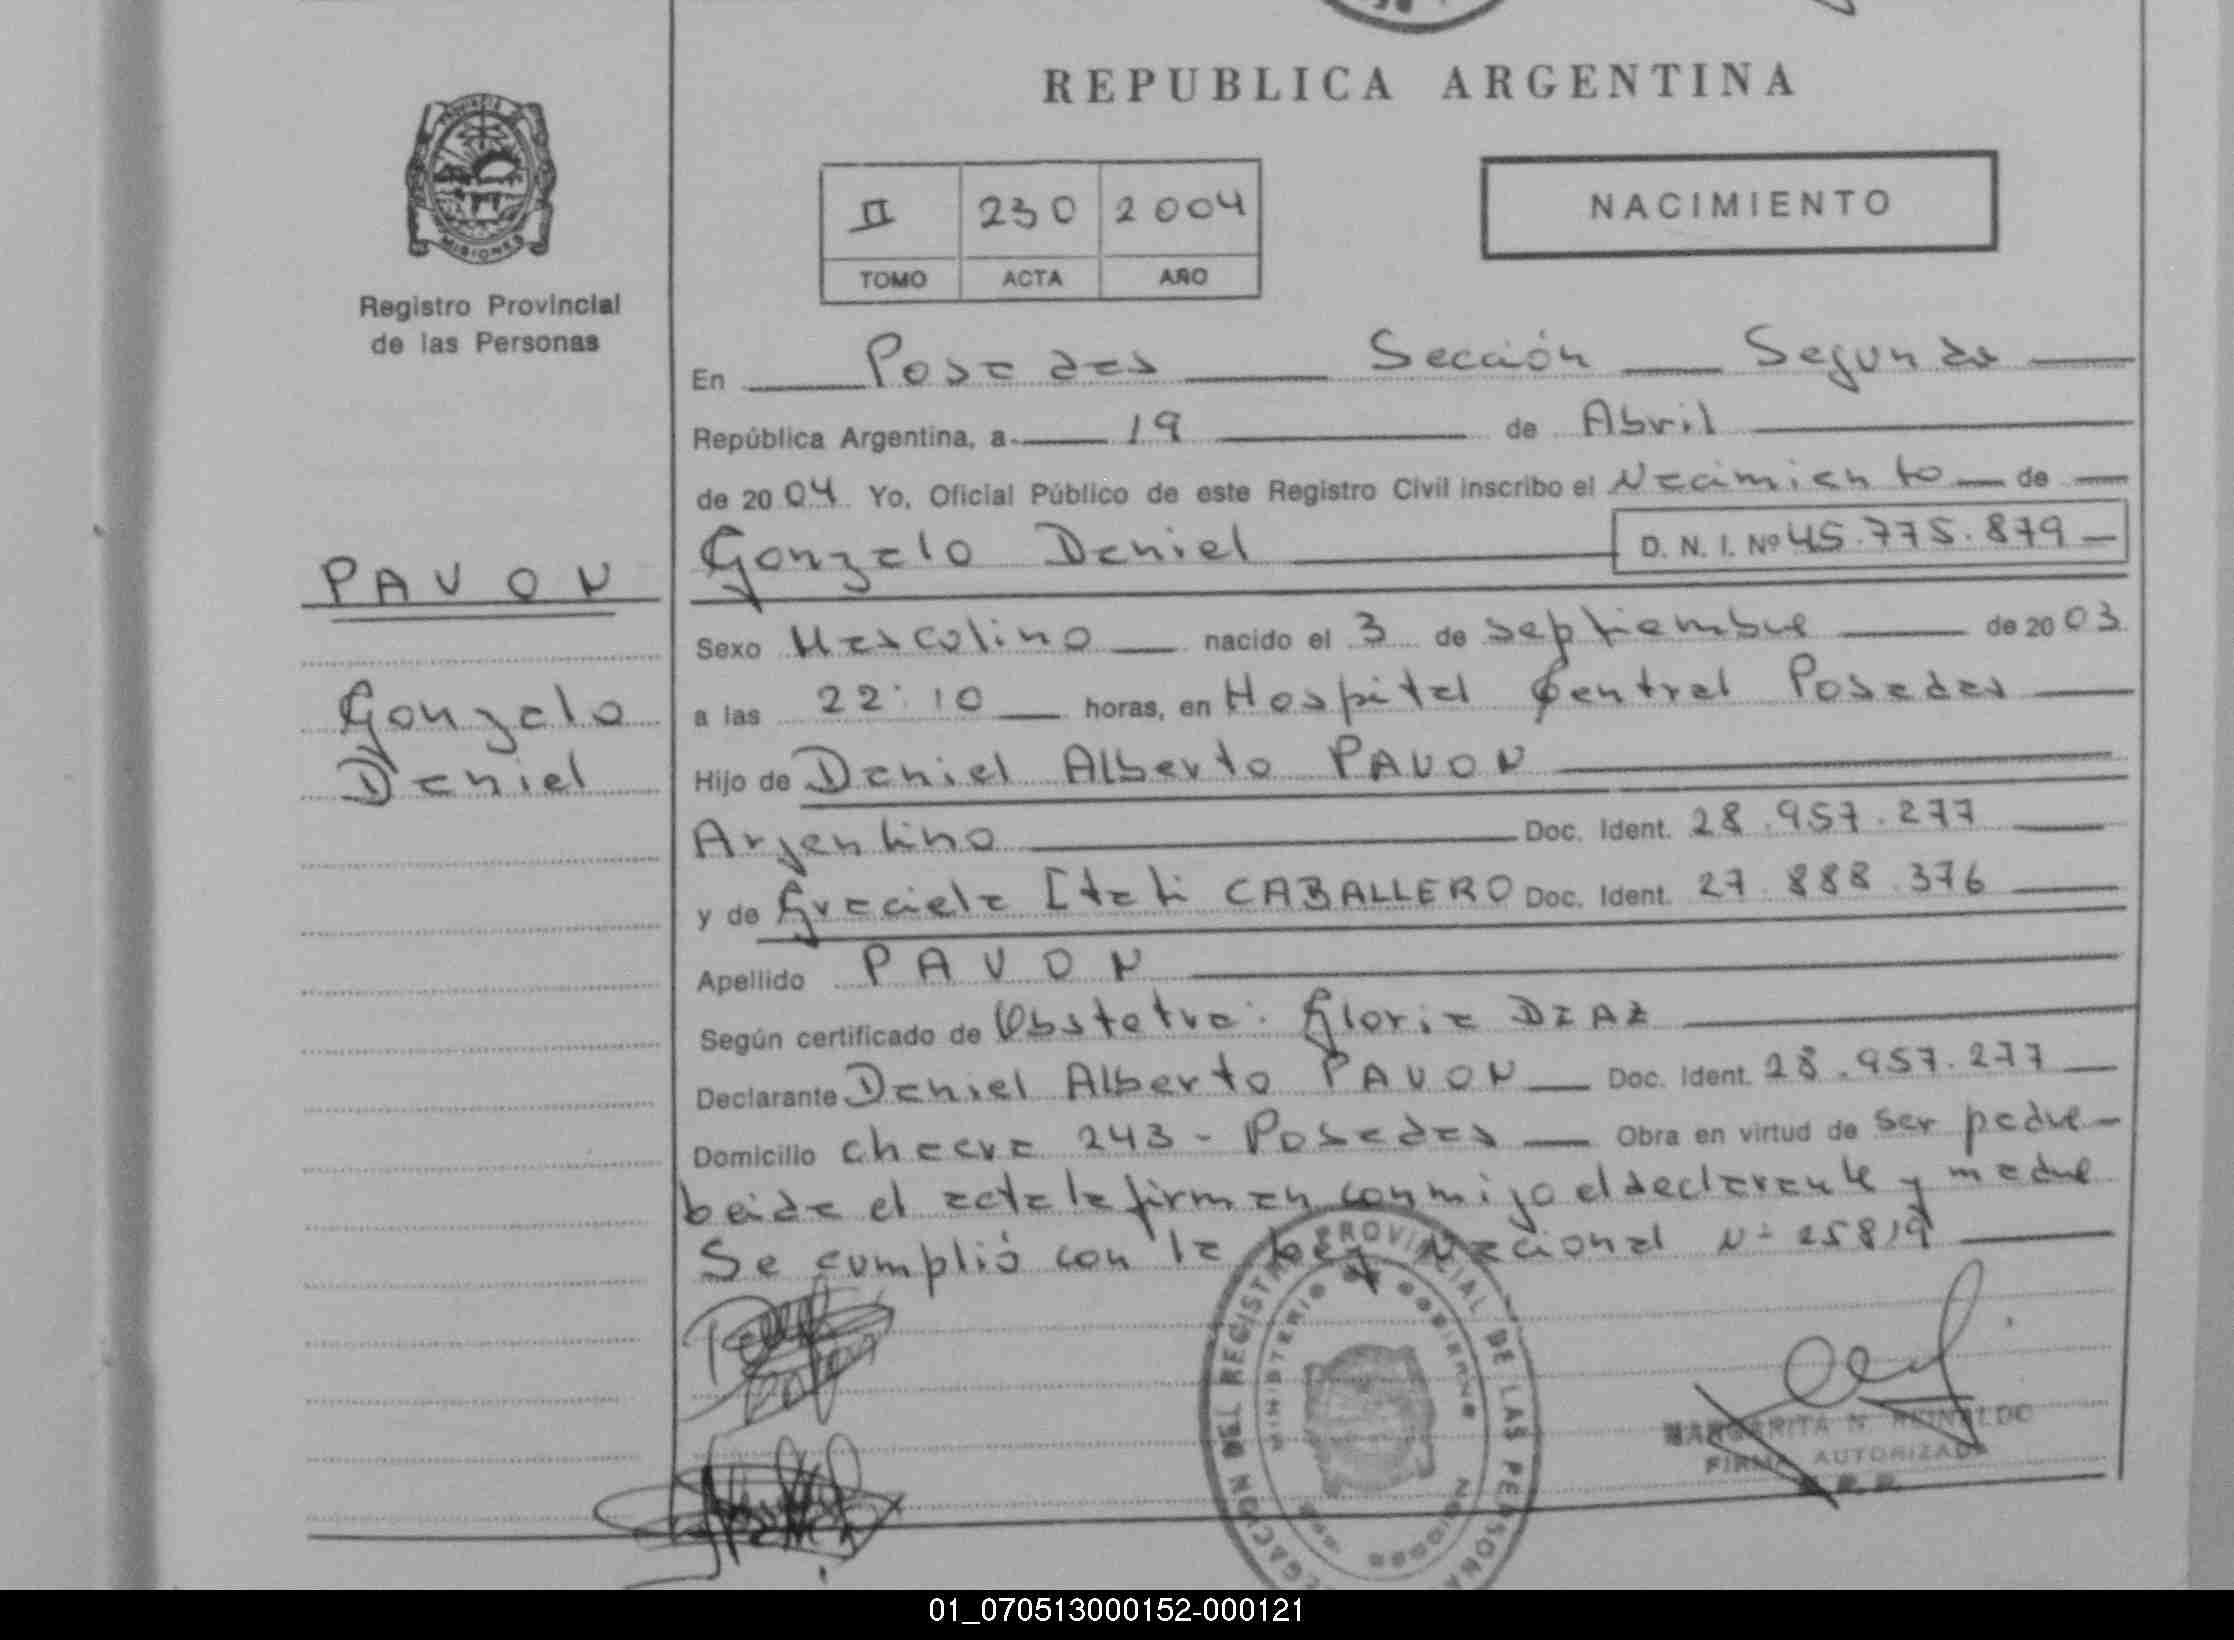 REPUBLICA ARGENTINA
MISIONES
Registro Provincial
de las Personas
II 230 2004
TOMO ACTA AÑO
NACIMIENTO
En Posadas Sección Segunda
República Argentina, a 19 de Abril
de 2004 Yo, Oficial Público de este Registro Civil inscribo el Nacimiento de
Gonzalo Daniel D. N. I. Nº 45.775.879
PAVON
Gonzalo
Daniel
Sexo Masculino nacido el 3 de septiembre de 2003
a las 22:10 horas, en Hospital Central Posadas
Hijo de Daniel Alberto PAVON
Argentino Doc. Ident. 28.957.277
y de Graciela Itati CABALLERO Doc. Ident. 27.888.376
Apellido PAVON
Según certificado de Obstetra: Gloria DIAZ
Declarante Daniel Alberto PAVON Doc. Ident. 28.957.277
Domicilio 243 - Posadas Obra en virtud de ser padre
Leida el acta la firman conmigo el declarante y madre
Se cumplió con la Ley Nacional Nº 25819
DEL REGISTRO PROVINCIAL DE LAS PERSONAS
MINISTERIO DE GOBIERNO
MISIONES
MARGARITA N. REINALDO
FIRMA AUTORIZADA
01_070513000152-000121